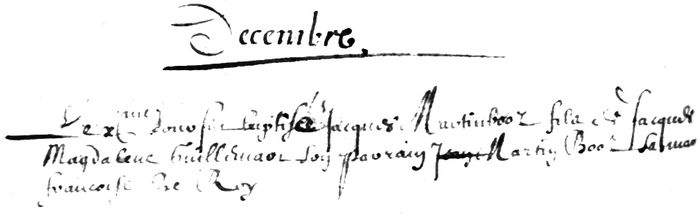 Decembre
Le x^me Jour fut baptisé Jacques Martinboz filz de Jacques
Magdalene Guillemaot son parrain Jean Martin Booz sa mar
francoise De Roy